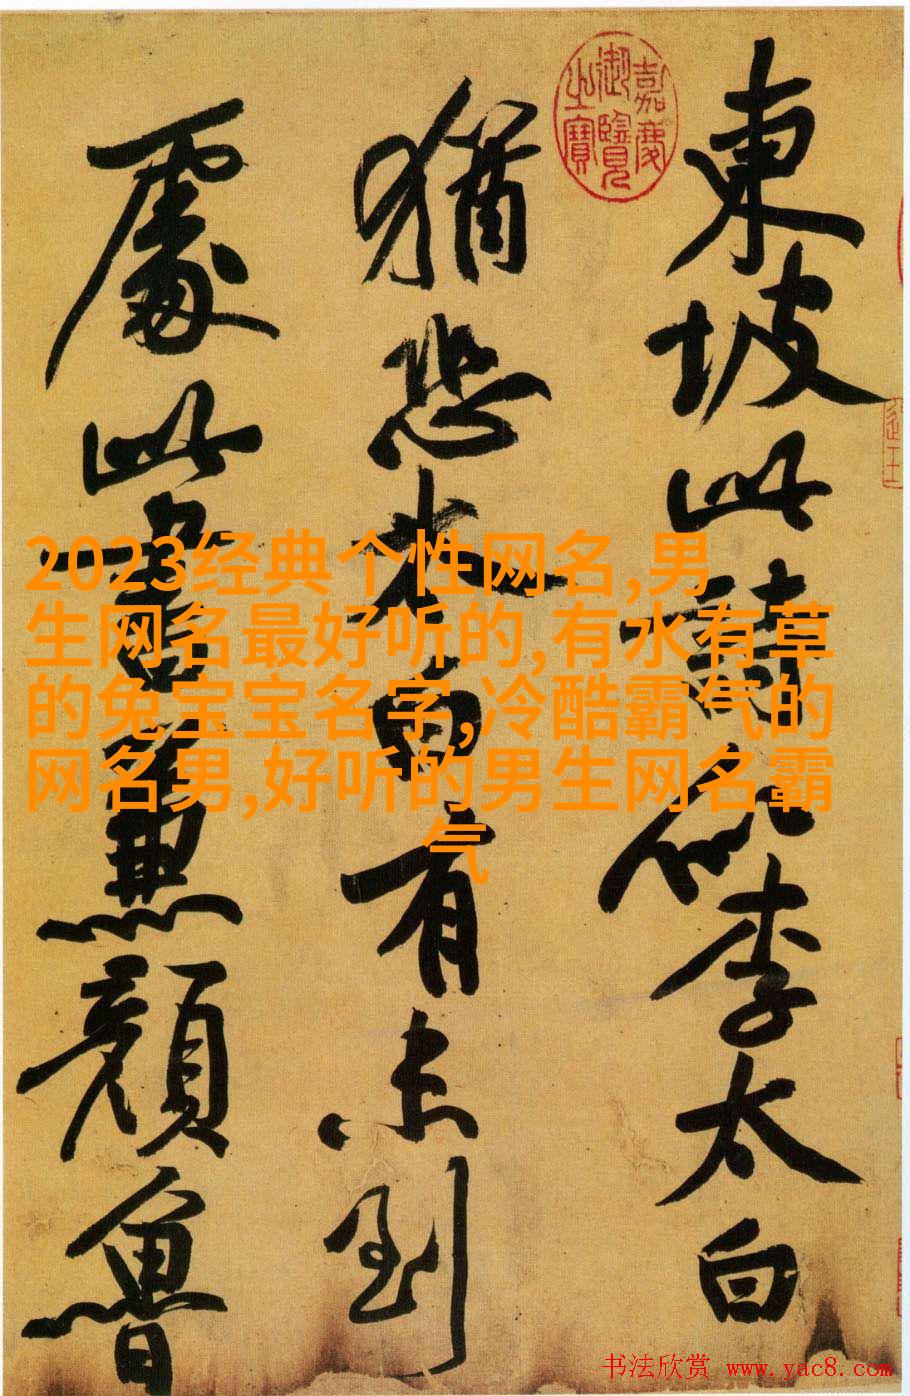 東坡此詩似李太白
猶恐太白有未到
處此書兼顔魯
嘉慶
御覽
之寶
2023经典个性网名,男
生网名最好听的,有水有草
的兔宝宝名字,冷酷霸气的
网名男,好听的男生网名霸
气
书法欣赏 www.yac8.com